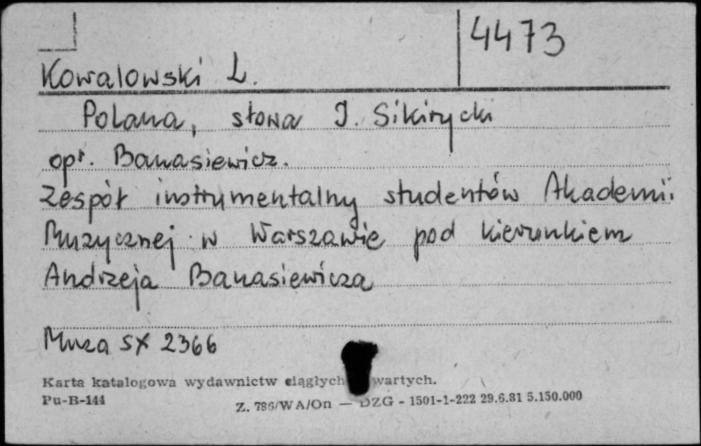 4473
Kowalowski L.
Polana, słowa I. Sikirycki
opr. Banasiewicz.
Zespół instrumentalny studentów Akademii
Muzycznej w Warszawie pod kierunkiem
Andrzeja Banasiewicza
Muza SX 2366
Karta katalogowa wydawnictw ciągłych wartych.
Pu-B-144 Z. 786/WA/On — DZG - 1501-1-222 29.6.81 5.150.000